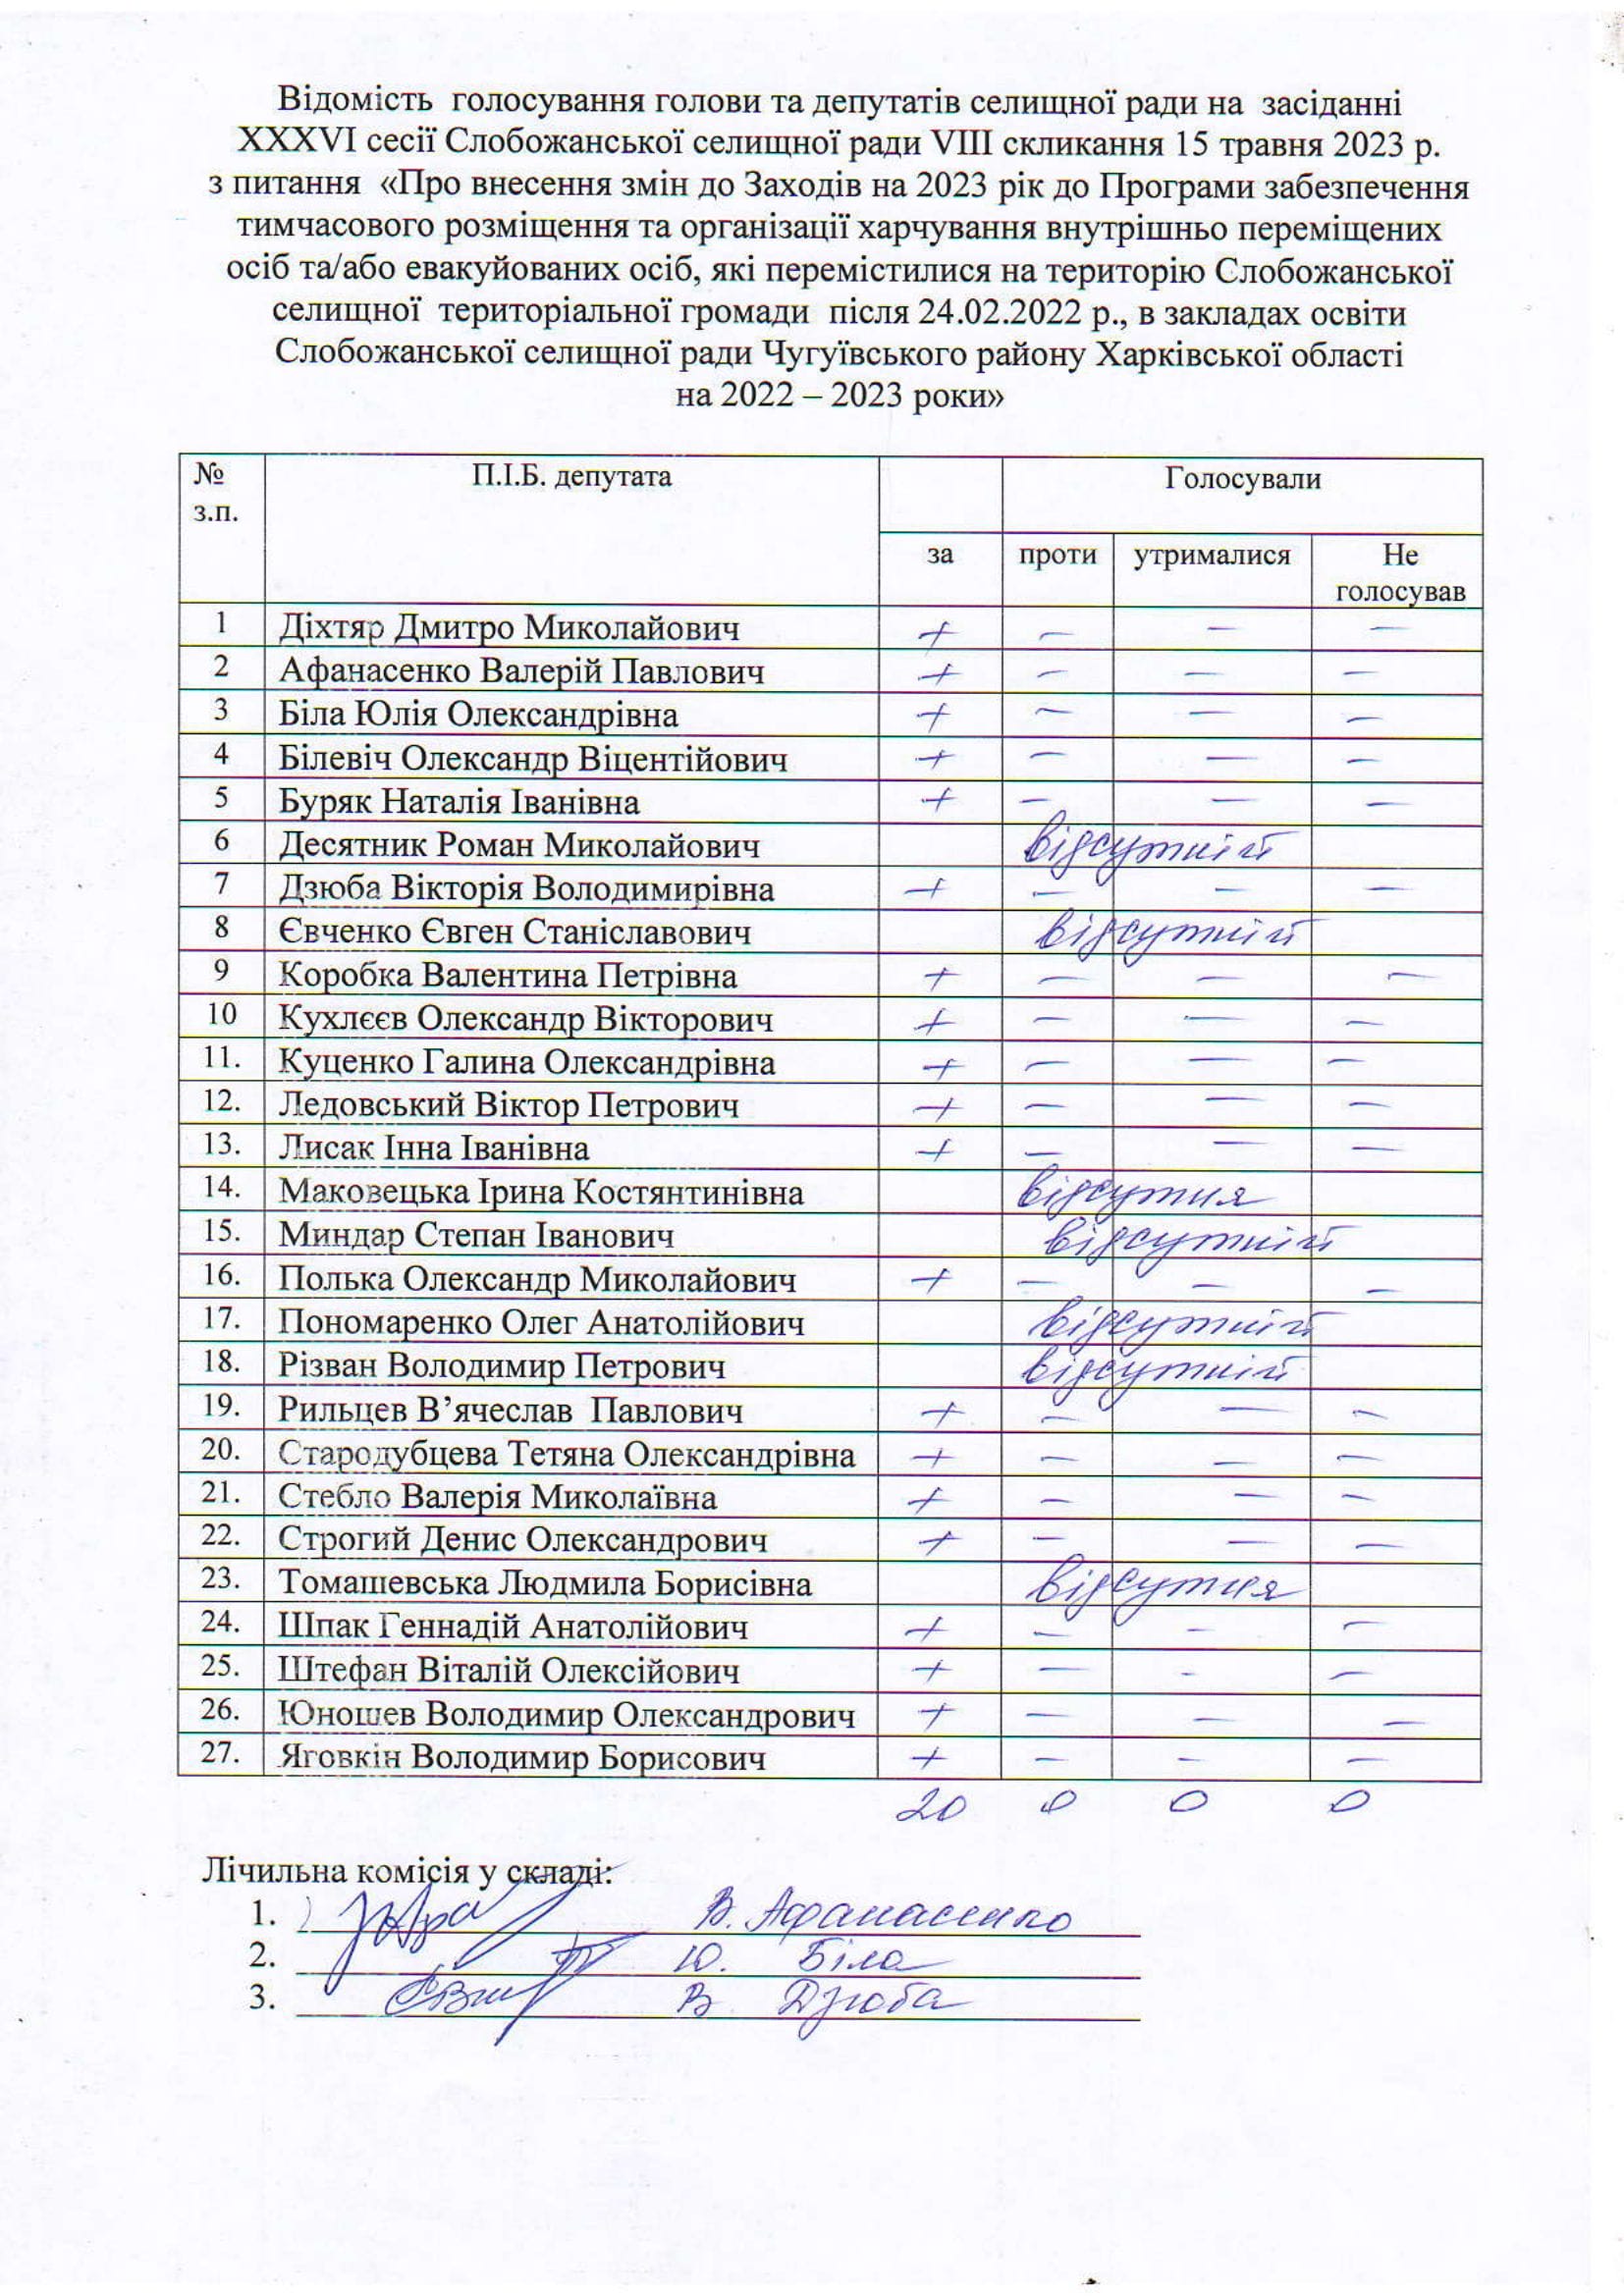 Відомість голосування голови та депутатів селищної ради на засіданні
XXXVI сесії Слобожанської селищної ради VIII скликання 15 травня 2023 р.
з питання «Про внесення змін до Заходів на 2023 рік до Програми забезпечення
тимчасового розміщення та організації харчування внутрішньо переміщених
осіб та/або евакуйованих осіб, які перемістилися на територію Слобожанської
селищної територіальної громади після 24.02.2022 р., в закладах освіти
Слобожанської селищної ради Чугуївського району Харківської області
на 2022 – 2023 роки»
№ з.п. П.І.Б. депутата Голосували
за проти утрималися Не голосував
1 Діхтяр Дмитро Миколайович + – – –
2 Афанасенко Валерій Павлович + – – –
3 Біла Юлія Олександрівна + – – –
4 Білевіч Олександр Віцентійович + – – –
5 Буряк Наталія Іванівна + – – –
6 Десятник Роман Миколайович відсутній
7 Дзюба Вікторія Володимирівна + – – –
8 Євченко Євген Станіславович відсутній
9 Коробка Валентина Петрівна + – – –
10 Кухлєєв Олександр Вікторович + – – –
11. Куценко Галина Олександрівна + – – –
12. Ледовський Віктор Петрович + – – –
13. Лисак Інна Іванівна + – – –
14. Маковецька Ірина Костянтинівна відсутня
15. Миндар Степан Іванович відсутній
16. Полька Олександр Миколайович + – – –
17. Пономаренко Олег Анатолійович відсутній
18. Різван Володимир Петрович відсутній
19. Рильцев В’ячеслав Павлович + – – –
20. Стародубцева Тетяна Олександрівна + – – –
21. Стебло Валерія Миколаївна + – – –
22. Строгий Денис Олександрович + – – –
23. Томашевська Людмила Борисівна відсутня
24. Шпак Геннадій Анатолійович + – – –
25. Штефан Віталій Олексійович + – – –
26. Юношев Володимир Олександрович + – – –
27. Яговкін Володимир Борисович + – – –
20 0 0 0
Лічильна комісія у складі:
1. В. Афанасенко
2. Ю. Біла
3. В Дзюба